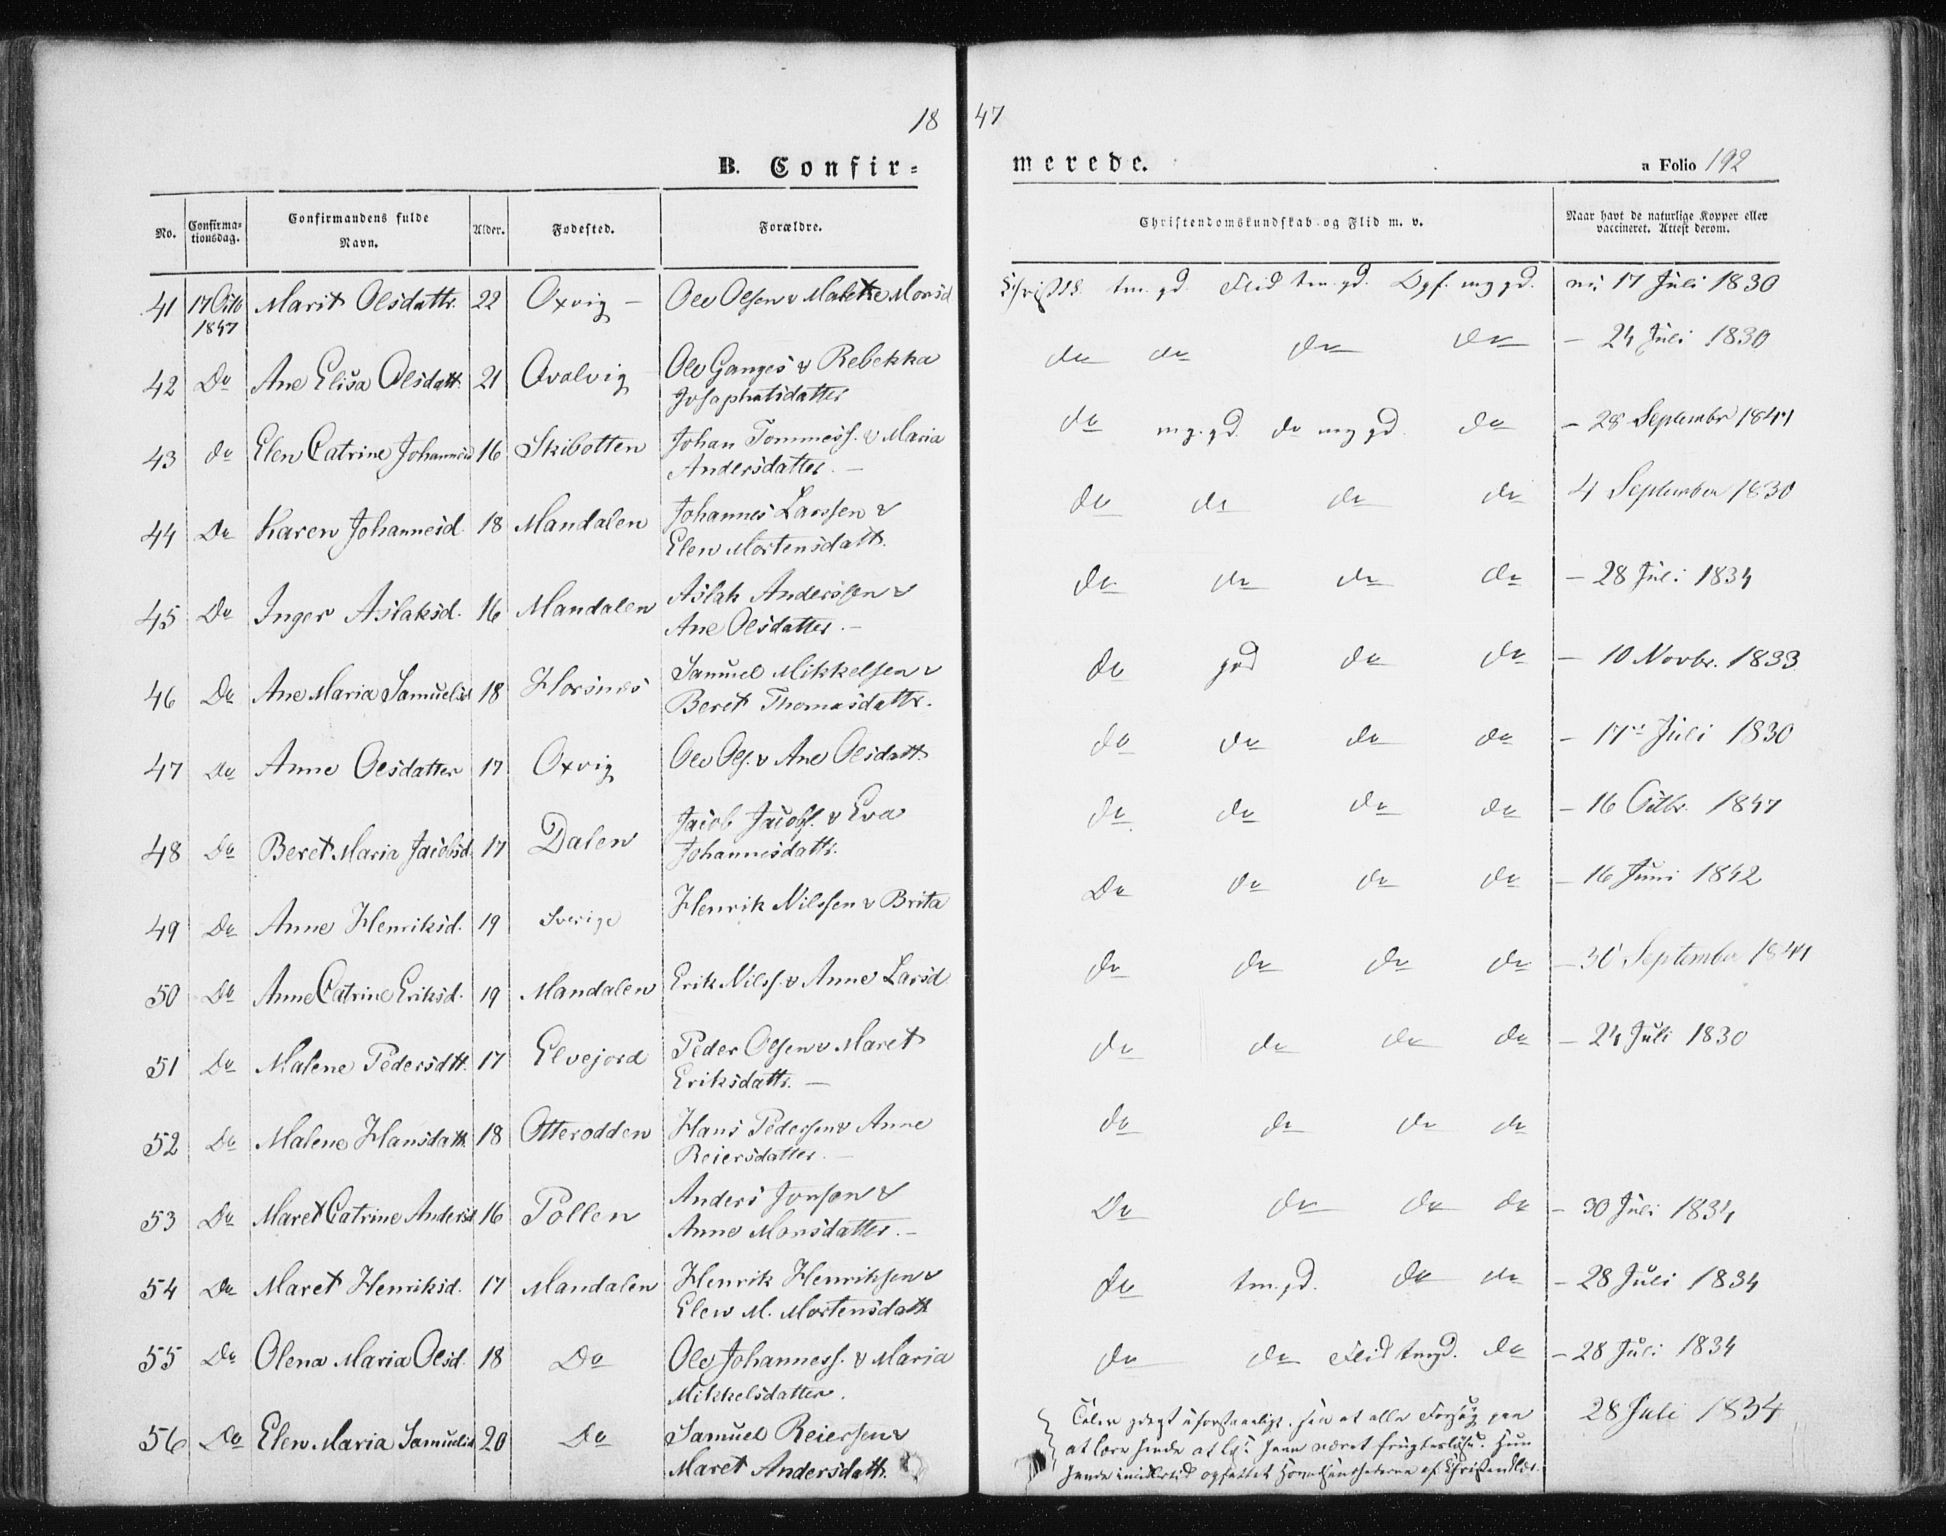 18 47
B. Confir= merede. a Folio 192
No. Confirma=tionsdag. Confirmandens fulde Navn. Alder. Fødested. Forældre. Christendomskundskab og Flid m. v. Naar havt de naturlige Kopper eller vaccineret. Attest derom.
41 17 Octb Marit Olsdattr. 22 Oxvig – Ole Olsen & Malekke Monsd Christds tm. gd. Flid tm. gd. Opf. mg gd. 17 Juli 1830
1847
42 Do Ane Elisa Olsdatt. 21 Qvalvig Ole Ganges & Rebekka do do do do – 24 Juli 1830
Josaphatsdatter
43 do Elen Catrine Johannesd 16 Skibotten Johan Tommess. & Maria do mg. gd. do mg gd. do – 28 Septembr 1844
Andersdatter. –
44 Do Karen Johannesd. 18 Mandalen Johannes Larssen & do do do do 4 September 1830
Elen Mortensdatt.
45 Do Inger Aslaksd. 16 Mandalen Aslak Anderssen & do do do do – 28 Juli 1834
Ane Olsdatter. –
46 Do Ane Maria Samuelsd 18 Horsnes Samuel Mikkelsen & do god do do – 10 Novbr. 1833
Beret Thomasdattr.
47 do Anne Olsdatter 17 Oxvig Ole Ols. & Ane Olsdatt. do do do do – 17de Juli 1830
48 Do Beret Maria Jacobsd. 17 Dalen Jacob Jacobs. & Eva do do do do – 16 Octbr. 1847
Johannesdattr.
49 Do Anne Henriksd. 19 Sverige Henrik Nilssen & Brita Do do do do – 16 Juni 1842
50 Do Anne Catrine Eriksd. 19 Mandalen Erik Nilss. & Anne Larsd do do do do – 30 September 1844
51 Do Malene Pedersdtt. 17 Elvejord Peder Olsen & Maret do do do do – 24 Juli 1830
Eriksdattr. –
52 Do Malene Hansdatt. 18 Otterodden Hans Pedersen & Anne do do do do
Reiersdatter. –
53 Do Maret Catrine Andersd 16 Pollen Anders Jonsen & Do do do do – 30 Juli 1834
Anne Monsdatter. –
54 Do Maret Henriksd. 17 Mandalen Henrik Henriksen & do tm. gd. do do – 28 Juli 1834
Elen M. Mortensdatt
55 Do Olena Maria Olsd. 18 Do Ole Johanness. & Maria do do Flid tmgd. do – 28 Juli 1834
Mikkelsdatter.
56 Do Elen Maria Samuelsd 20 Do Samuel Reiersen & Taler uforstaaeligt. at alle Forsøg paa 28 Juli 1834
Maret Andersdatt. at lære hende at været frugtesløse. Hun
imidlertid opfattet af